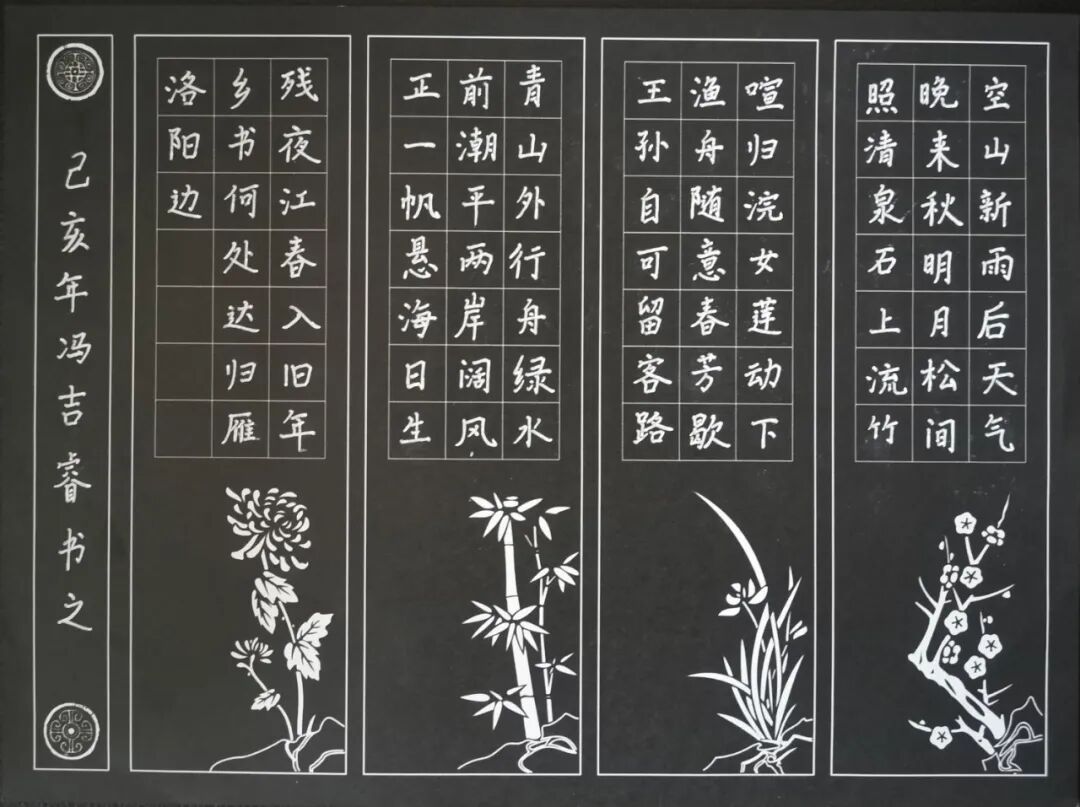 空山新雨后天气
晚来秋明月松间
照清泉石上流竹
喧归浣女莲动下
渔舟随意春芳歇
王孙自可留客路
青山外行舟绿水
前潮平两岸阔风
正一帆悬海日生
残夜江春入旧年
乡书何处达归雁
洛阳边
己亥年冯吉睿书之